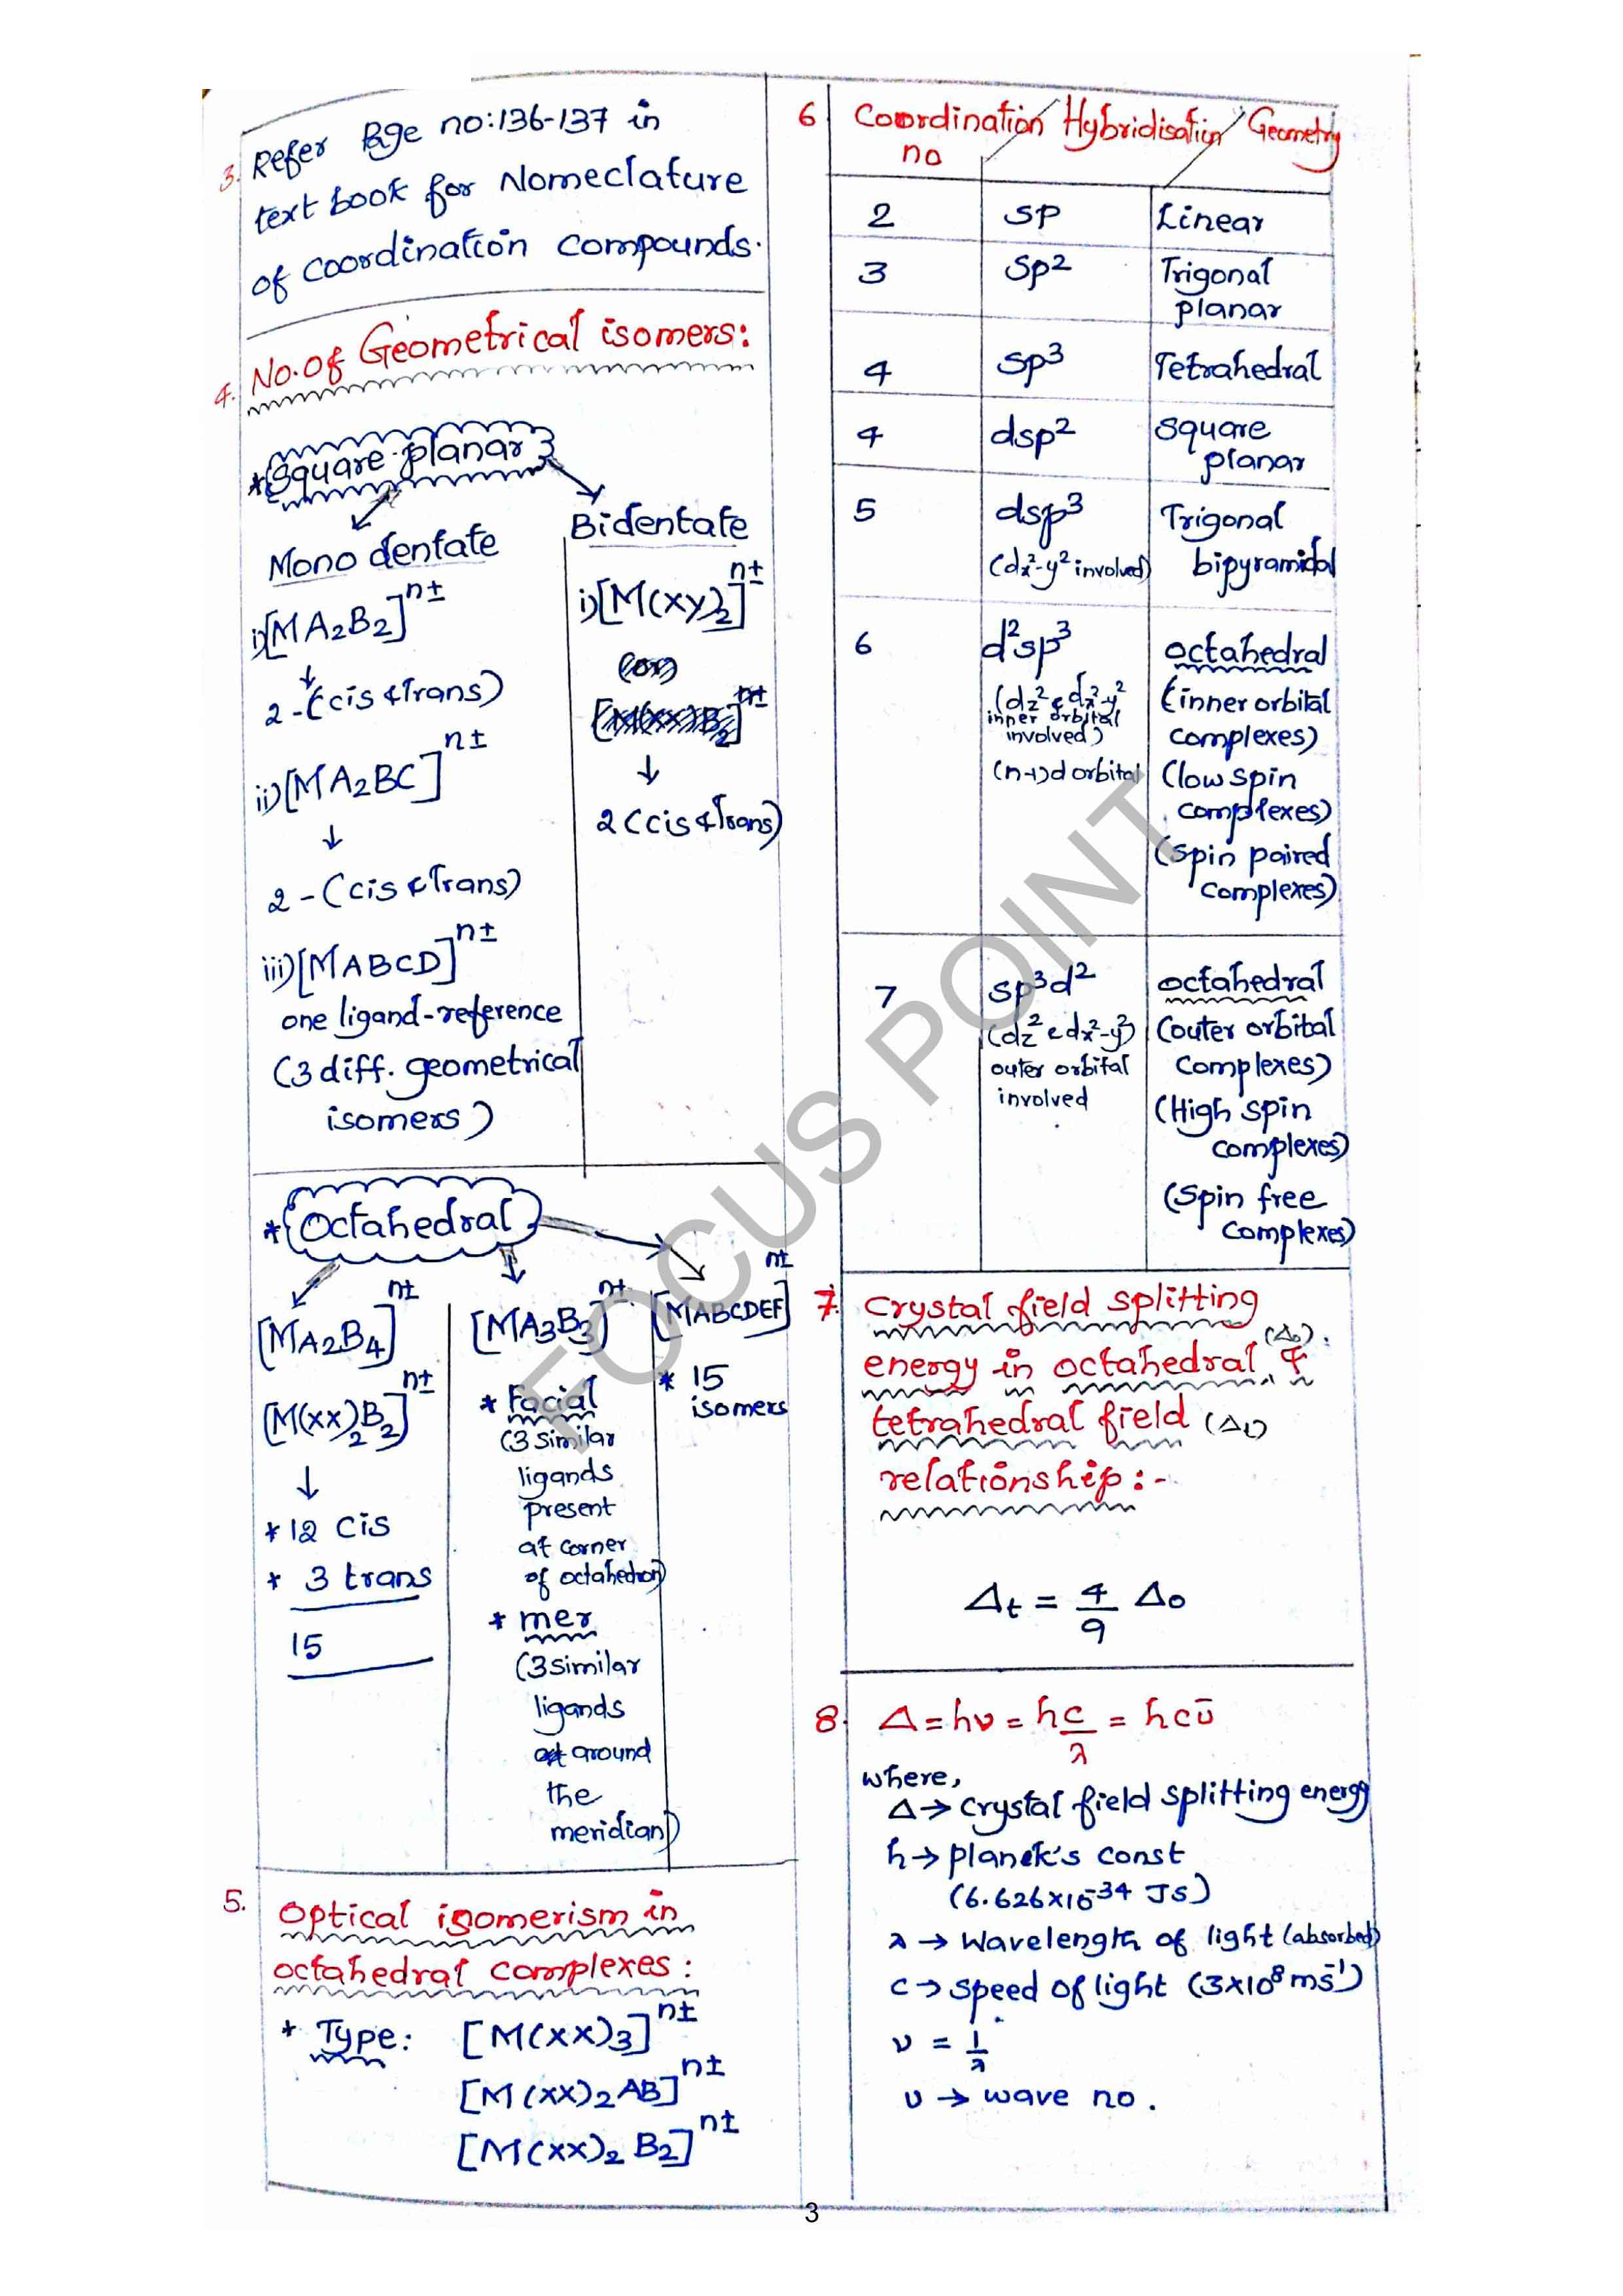 3. Refer Page no:136-137 in
text book for Nomeclature
of coordination compounds.
4. No.of Geometrical isomers:
* Square planar
Mono dentate
i) [MA2B2]n±
↓
2 - (cis & Trans)
ii) [MA2BC]n±
↓
2 - (cis & Trans)
iii) [MABCD]n±
one ligand-reference
(3 diff. geometrical
isomers)
Bidentate
i) [M(xy)2]n±
(or)
↓
2 (cis & Trans)
* Octahedral
[MA2B4]n±
[M(xx)2B2]n±
↓
* 12 cis
* 3 trans
15
[MA3B3]n±
* Facial
(3 similar
ligands
present
at corner
of octahedron)
* mer
(3 similar
ligands
around
the
meridian)
[MABCDEF]n±
* 15
isomers
5. Optical isomerism in
octahedral complexes:
* Type: [M(xx)3]n±
[M(xx)2AB]n±
[M(xx)2 B2]n±
6 Coordination no / Hybridisation / Geometry
2 sp Linear
3 sp2 Trigonal planar
4 sp3 Tetrahedral
4 dsp2 square planar
5 dsp3 Trigonal
(dx²-y² involved) bipyramidal
6 d²sp³ octahedral
(dz² & dx²-y² (inner orbital
inner orbital
involved) complexes)
(n-1)d orbital (low spin
complexes)
(spin paired
complexes)
7 sp³d² octahedral
(dz² & dx²-y²) (outer orbital
outer orbital complexes)
involved (High spin
complexes)
(spin free
complexes)
7. Crystal field splitting
energy in octahedral (Δo) &
tetrahedral field (Δt)
relationship:-
Δt = 4/9 Δo
8. Δ = hν = hc/λ = hcῡ
where,
Δ → crystal field splitting energy
h → planck's const
(6.626x10-34 JS)
λ → wavelength of light (absorbed)
c → speed of light (3x10⁸ms-1)
ν = 1/λ
υ → wave no.
FOCUS POINT
3